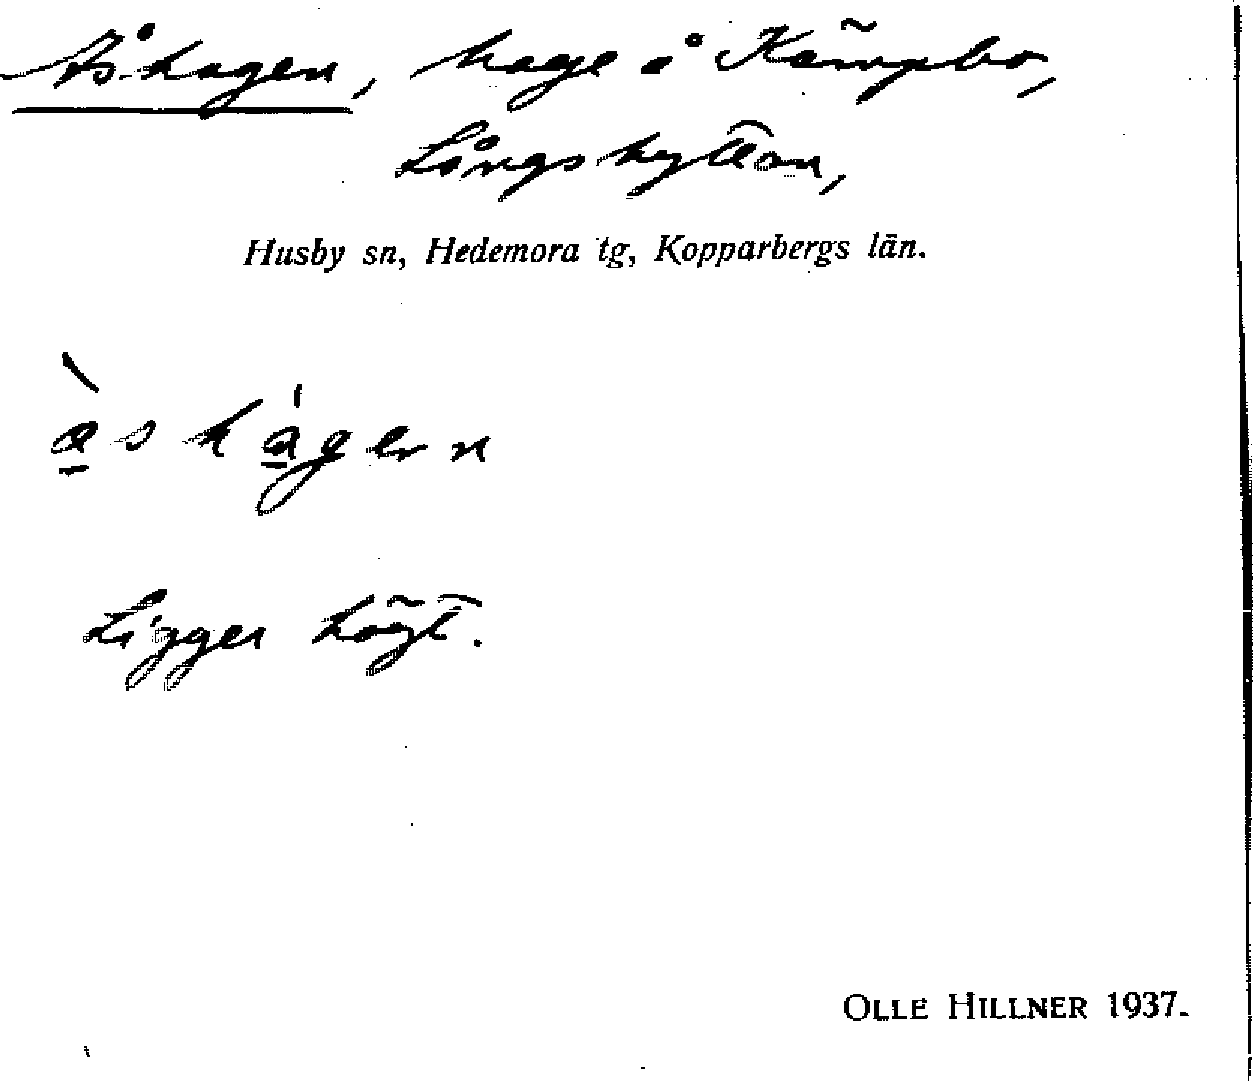 Åshagen, hage å Kämpbo,
Långshyttan,
Husby sn, Hedemora tg, Kopparbergs län.
Ligger högt.
OLLE HILLNER 1937.